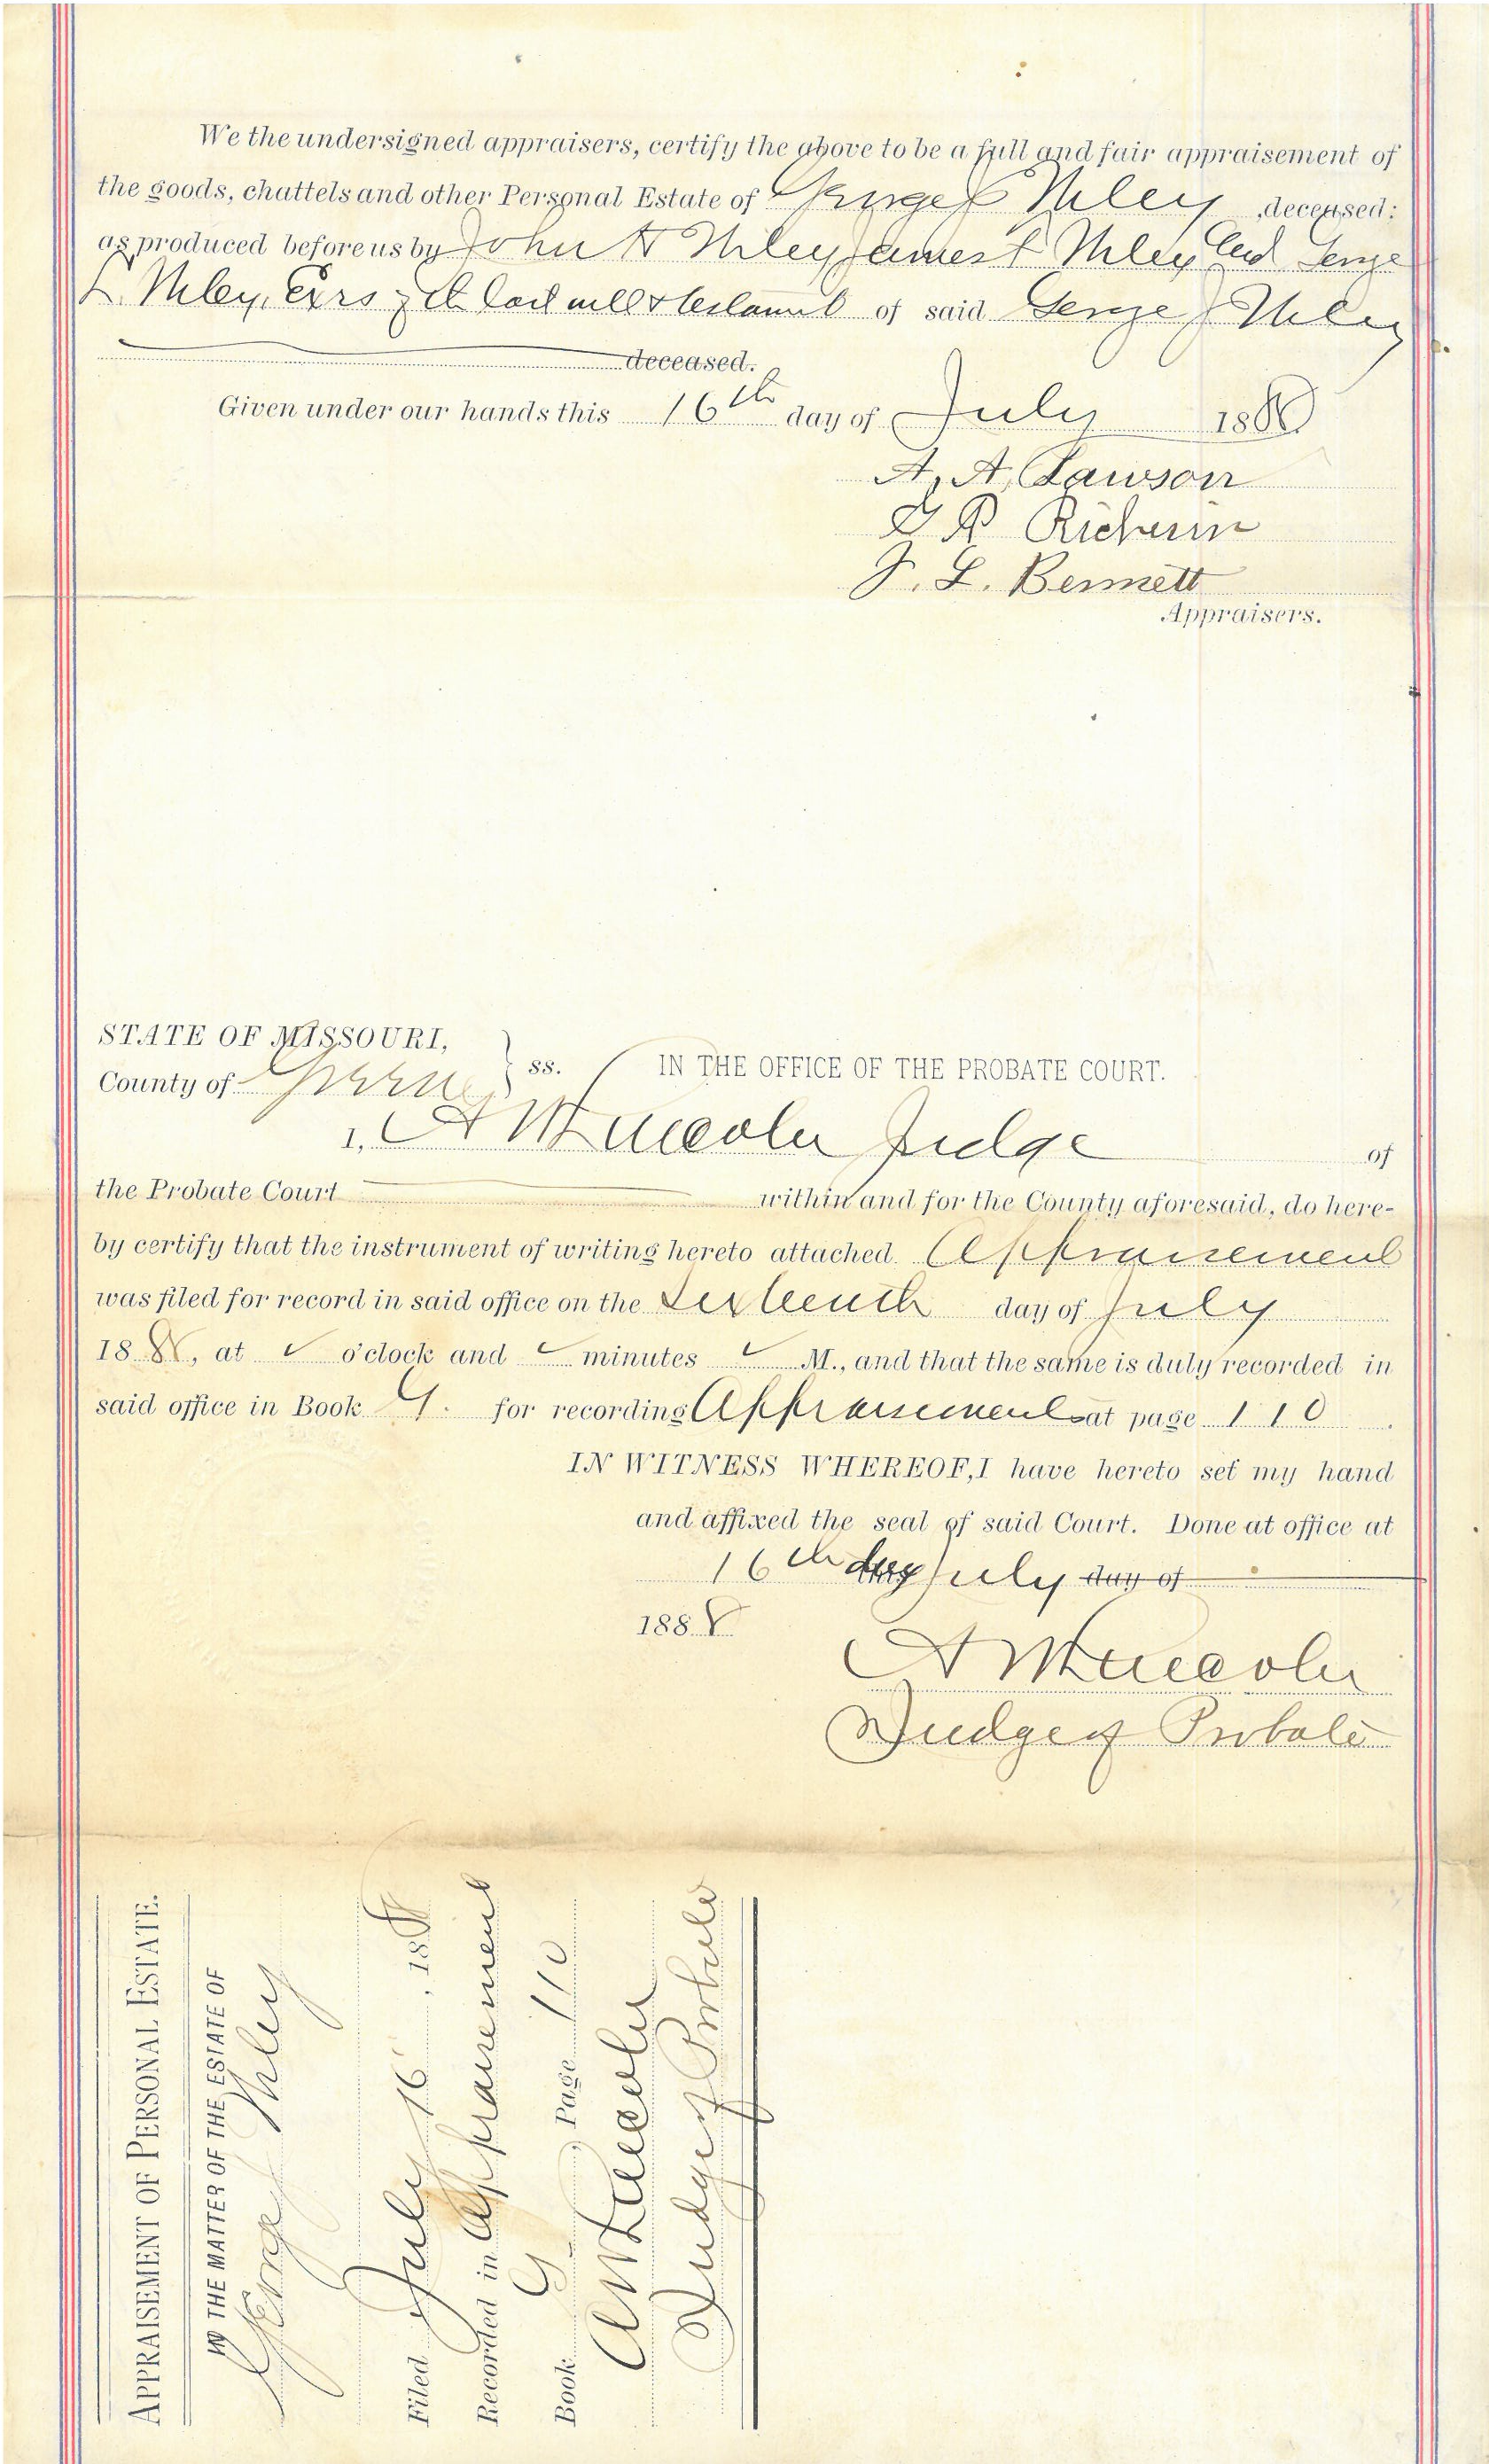 We the undersigned appraisers, certify the above to be a full and fair appraisement of
the goods, chattels and other Personal Estate of George J Niley , deceased:
as produced before us by John H Niley James L Niley and George
L. Niley, Exrs of the last will & testament of said George J Niley
deceased.
Given under our hands this 16th day of July 1888
A, A, Lawson
G R
J. L. Bennett
Appraisers.
STATE OF MISSOURI,
County of Greene } ss. IN THE OFFICE OF THE PROBATE COURT.
I, A W Lincoln Judge of
the Probate Court within and for the County aforesaid, do here-
by certify that the instrument of writing hereto attached Appraisement
was filed for record in said office on the Sixteenth day of July
1888, at o'clock and minutes M., and that the same is duly recorded in
said office in Book G. for recording Appraisements at page 110.
IN WITNESS WHEREOF, I have hereto set my hand
and affixed the seal of said Court. Done at office at
16th day July day of
1888
A W Lincoln
Judge of Probate
APPRAISEMENT OF PERSONAL ESTATE.
IN THE MATTER OF THE ESTATE OF
George J Niley
Filed July 16 , 1888
Recorded in Appraisement
Book G , Page 110
A W Lincoln
Judge of Probate